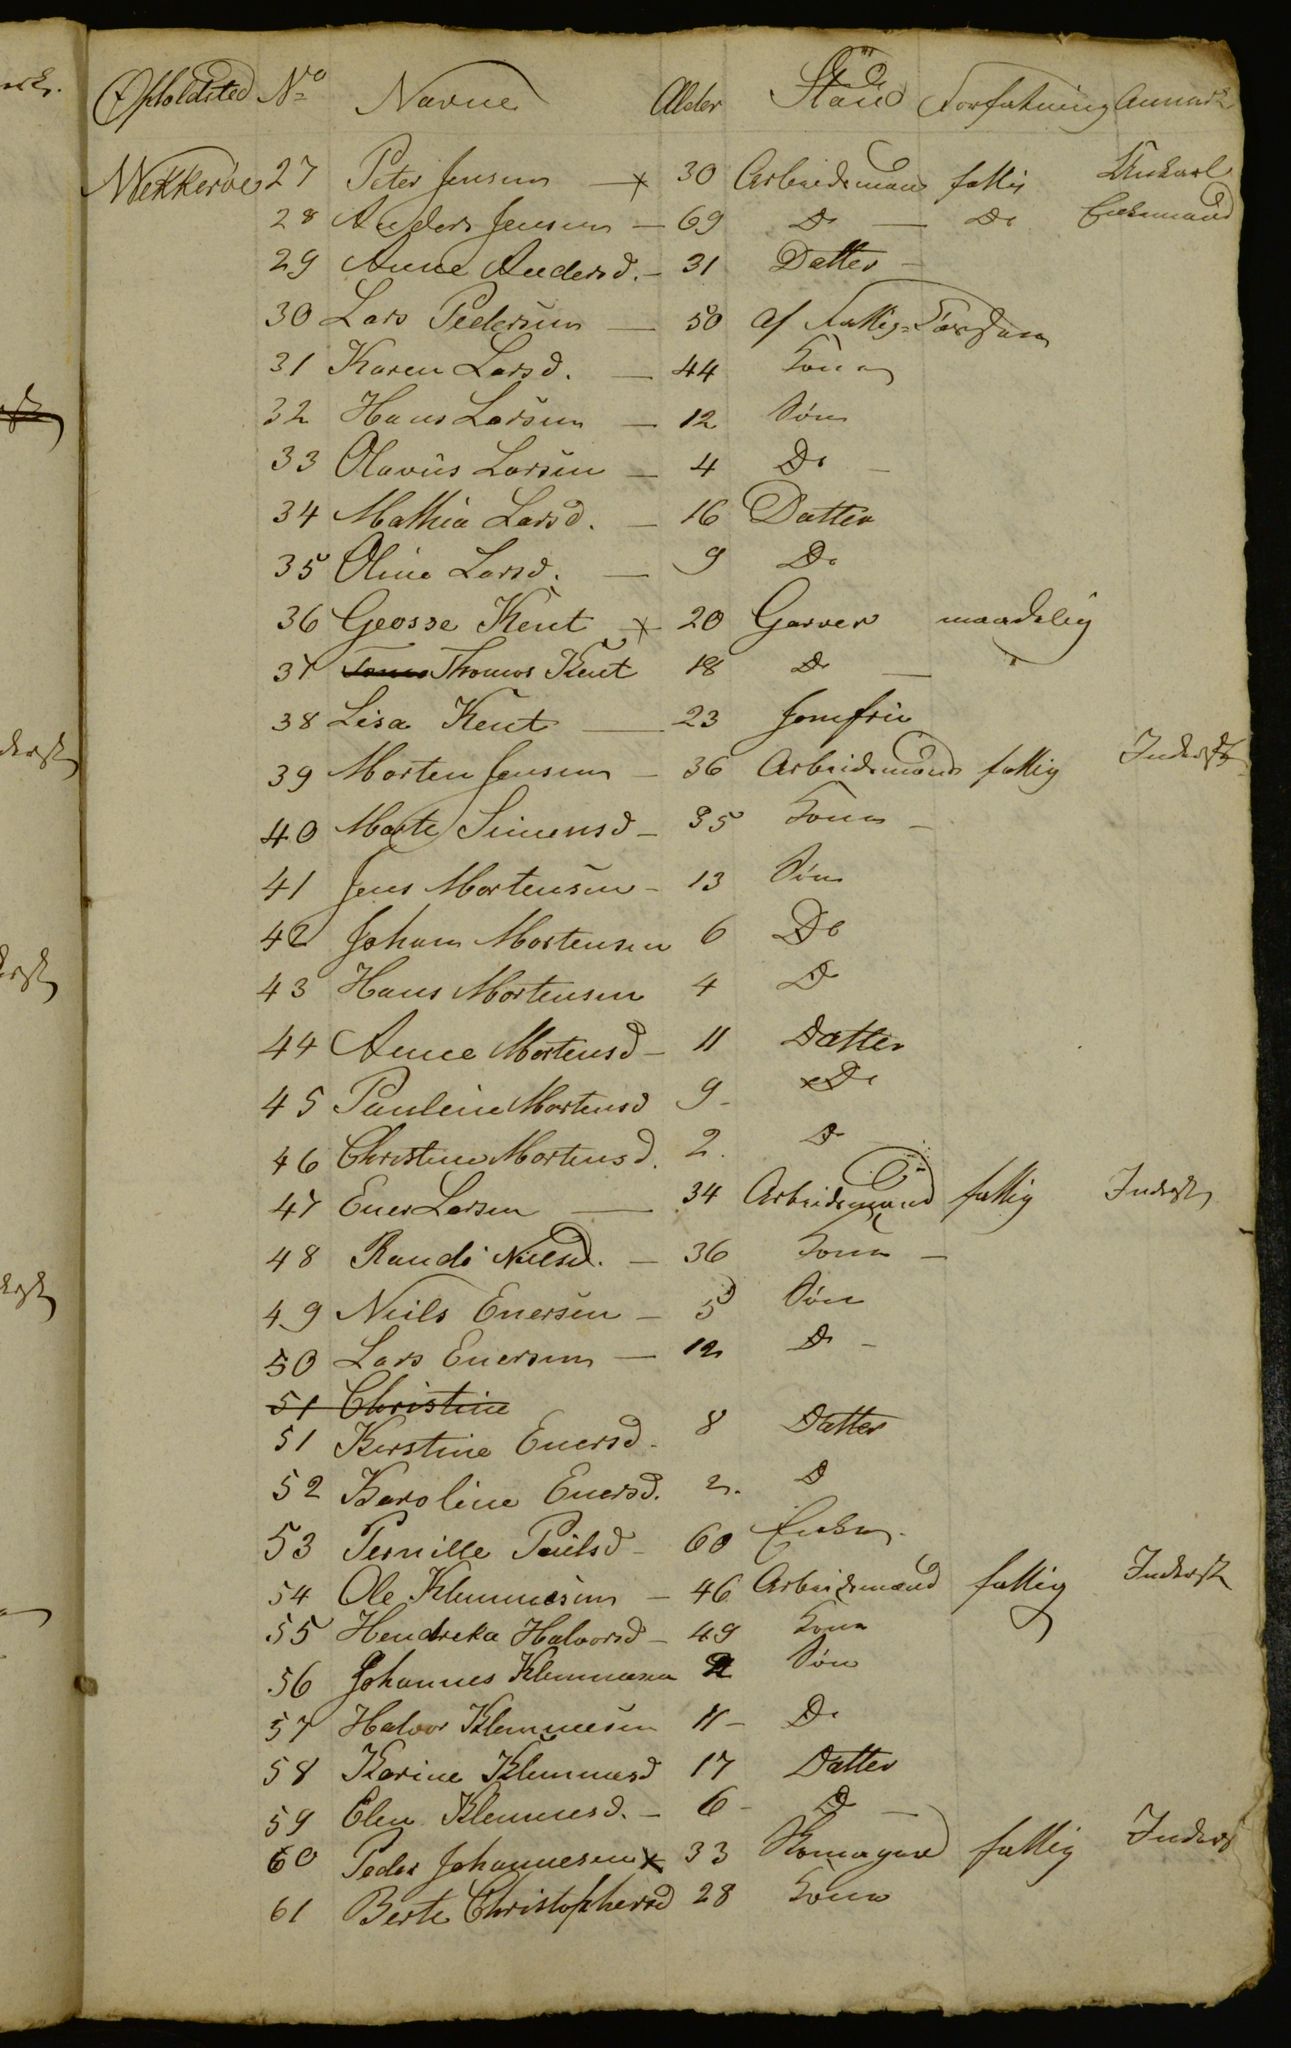 Opholdsted No Navne Alder Stand Forfatning Anmerk
Wekkeröe 27 Peter Jensen 30 Arbeidsmand fattig
28 Anders Jensen 69 Do Do Enkemand
29 Anne Andersd. 31 Datter
30 Lars Pedersen 50 af Fattig-
31 Karen Larsd. 44 Kone
32 Hans Larsen 12 Søn
33 Olavus Larsen 4 Do
34 Mathia Larsd. 16 Datter
35 Oline Larsd. 9 Do
36 Geosse Kent 20 Garver maadelig
37 Thomas Kent 18 Do
38 Lisa Kent 23 Jomfru
39 Morten Jensen 36 Arbeidsmand fattig Inderst
40 Marte Simensd 35 Kone
41 Jens Mortensen 13 Søn
42 Johan Mortensen 6 Do
43 Hans Mortensen 4 Do
44 Anne Mortensd 11 Datter
45 Pauline Mortensd 9 Do
46 Christine Mortensd. 2. Do
47 Ener Larsen 34 Arbeidsmand fattig Inderst
48 Randi Nielsd. 36 Kone
49 Neils Enersen 5 Søn
50 Lars Enersen 12 Do
51 Christine
51 Kirstine Enersd. 8 Datter
52 Karoline Enersd. 2. D
53 Pernille Paulsd 60 Enke
54 Ole Klemmesen 46 Arbeidsmand fattig Inderst
55 Hendreka Halvorsd 49 Kone
56 Johannes Klemmesen Søn
57 Halvor Klemmesen 11 Do
58 Karine Klemmesd 17 Datter
59 Elen Klemmesd. 6 D
60 Peder Johannesen 33 Skomager fattig Inders
61 Berte Christophersd 28 Kone